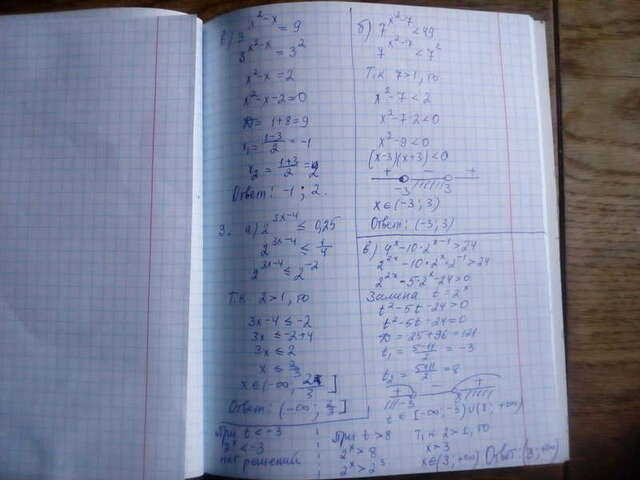 в) 3^(x²-x) = 9
3^(x²-x) = 3²
x²-x=2
x²-x-2=0
D = 1+8=9
x₁ = (1-3)/2 = -1
x₂ = (1+3)/2 = 2
Ответ: -1; 2.
3. а) 2^(3x-4) ≤ 0,25
2^(3x-4) ≤ 1/4
2^(3x-4) ≤ 2^(-2)
Т.к 2>1, то
3x-4 ≤ -2
3x ≤ -2+4
3x ≤ 2
x ≤ 2/3
x ∈ (-∞; 2/3]
Ответ: (-∞; 2/3]
б) 7^(x²-7) < 49
7^(x²-7) < 7²
Т.к 7>1, то
x²-7 < 2
x²-7-2<0
x²-9<0
(x-3)(x+3)<0
+ - +
-3 3
x ∈ (-3; 3)
Ответ: (-3; 3)
в) 4^x-10·2^(x-1)>24
2^(2x)-10·2^x·2^(-1)>24
2^(2x)-5·2^x-24>0
Замена t = 2^x
t²-5t-24>0
t²-5t-24=0
D = 25+96=121
t₁ = (5-11)/2 = -3
t₂ = (5+11)/2 = 8
+ - +
-3 8
t ∈ (-∞; -3)∪(8; +∞)
При t < -3
2^x < -3
нет решений
При t > 8
2^x > 8
2^x > 2³
Т.к 2>1, то
x>3
x∈(3; +∞) Ответ: (3; +∞)